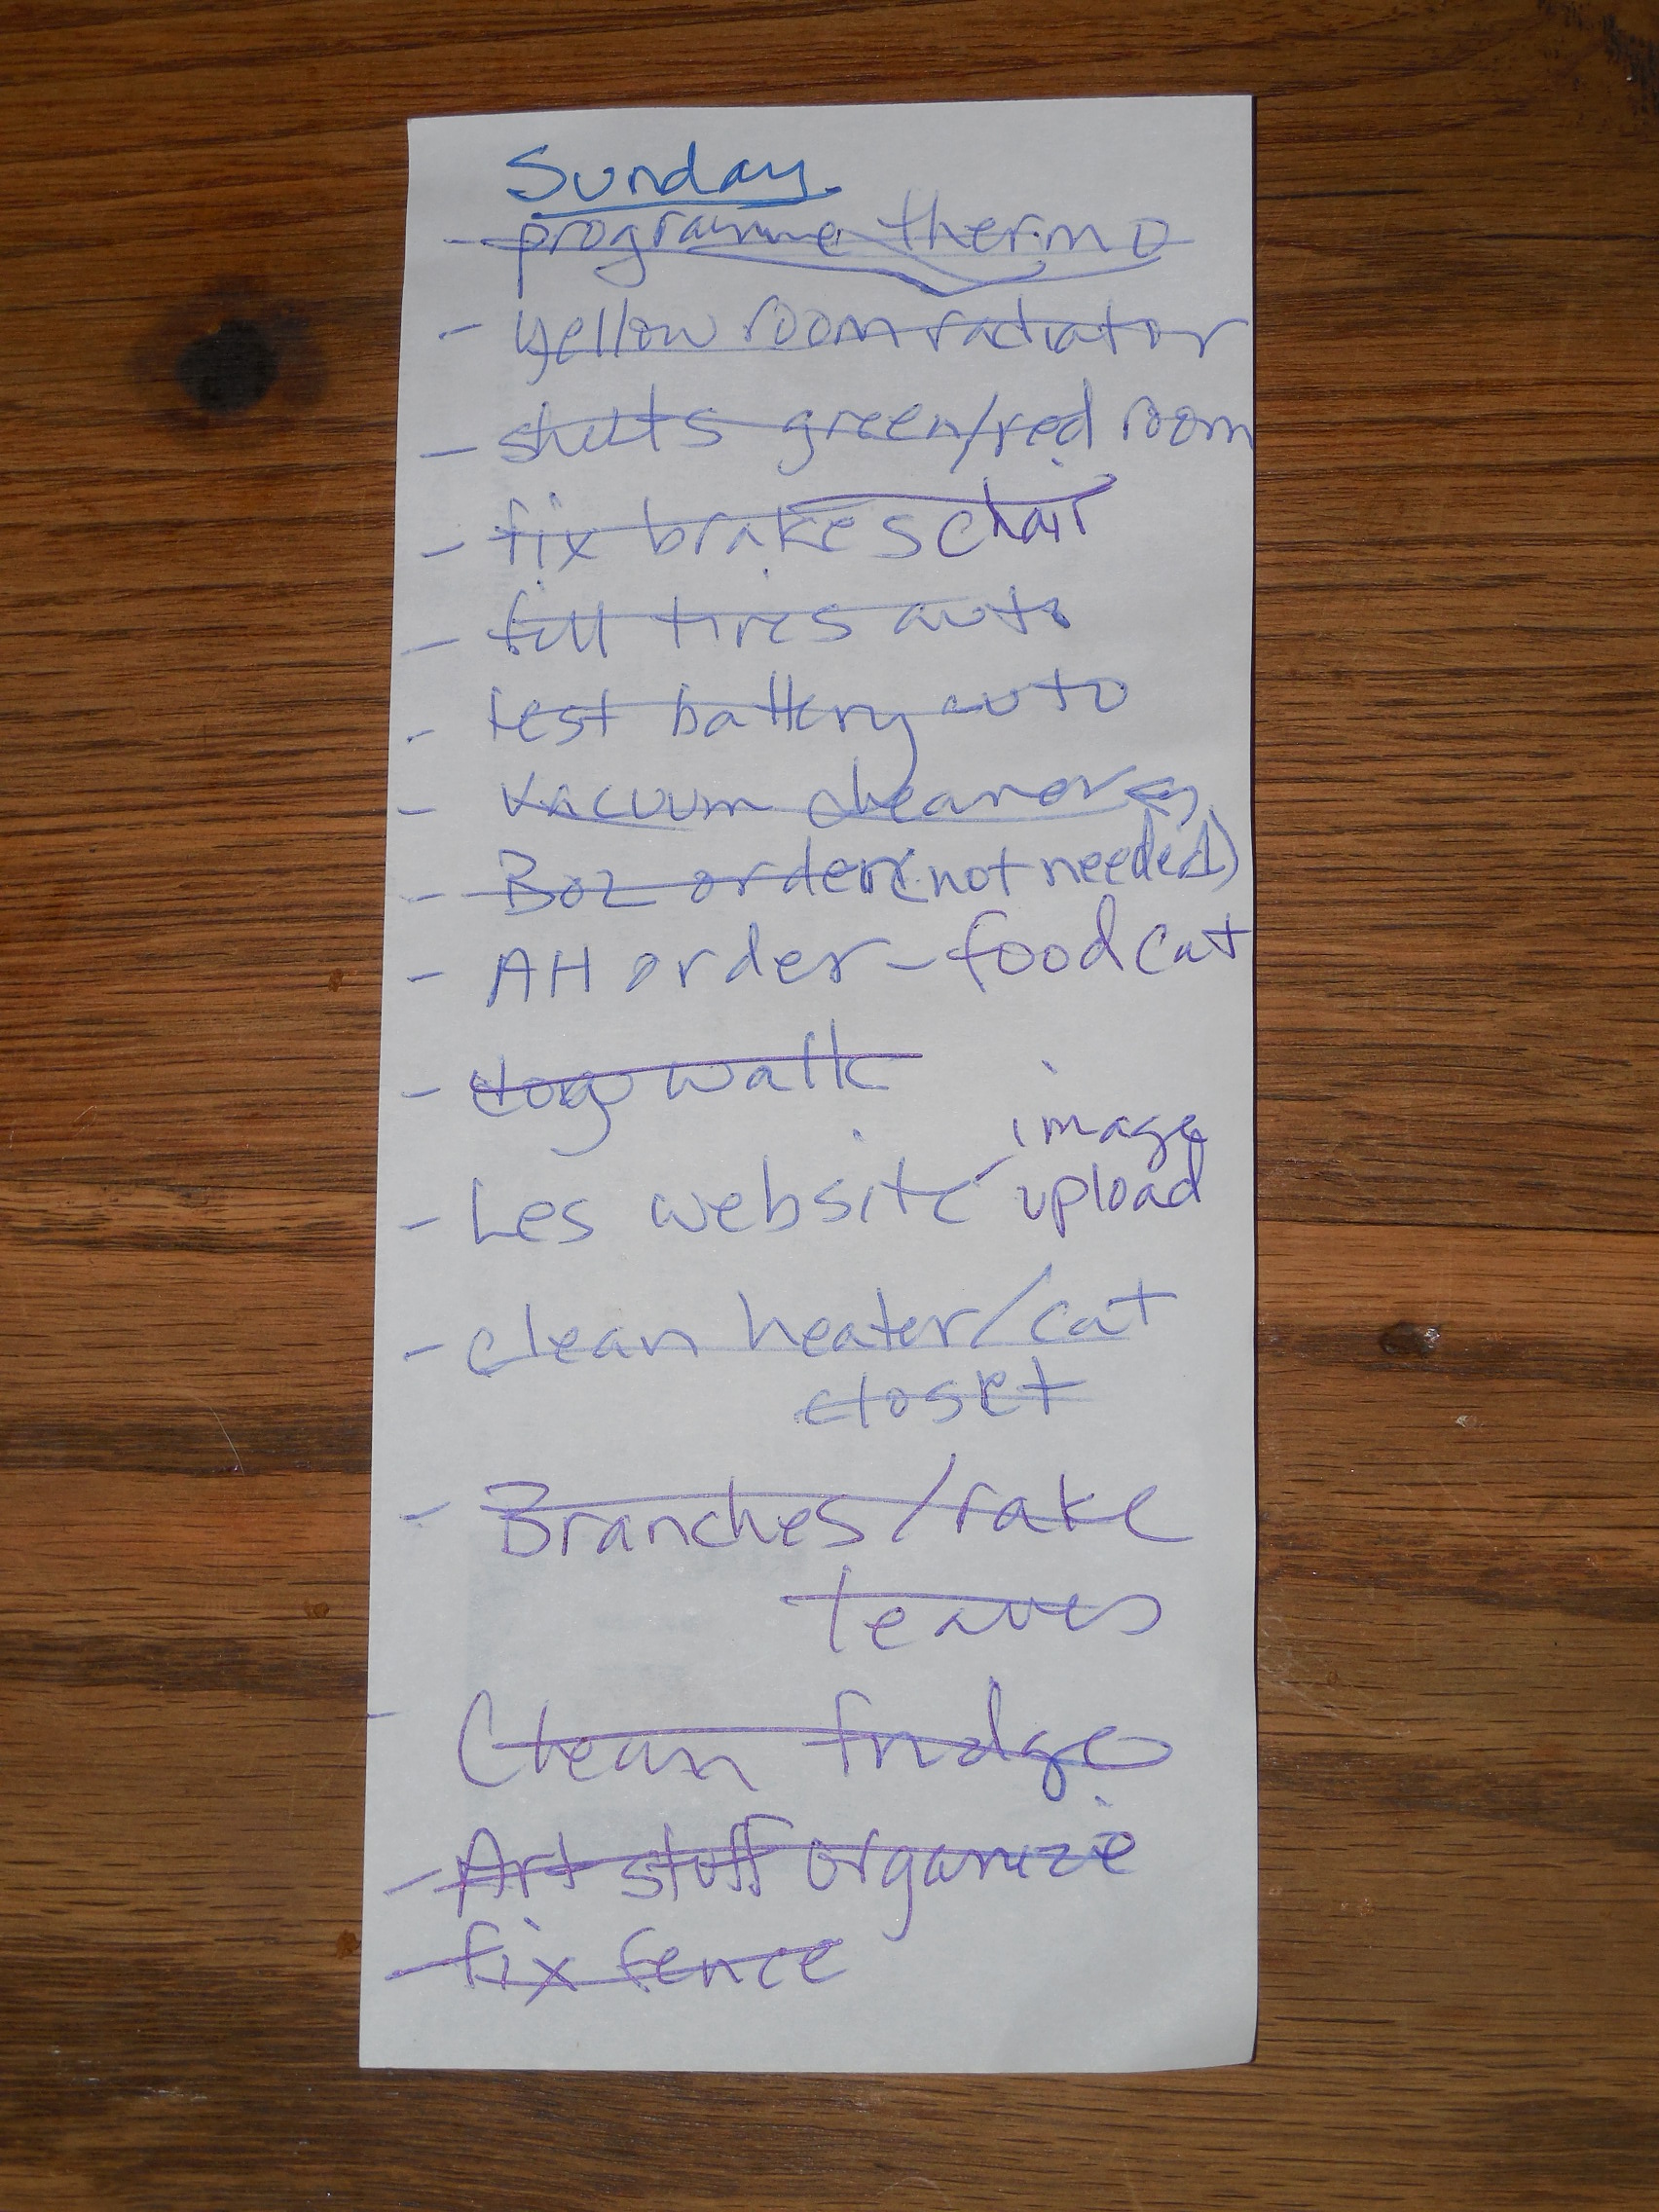 Sunday
- programme thermo
- yellow room radiator
- green/red room
- fix brakes chair
- fill tires auto
- test battery auto
- vacuum cleaner
- order (not needed)
- AH order - food cat
- dog walk
image
- Les website - upload
- clean heater/cat
closet
- Branches/rake
leaves
- Clean fridge
- Art stuff organize
- fix fence